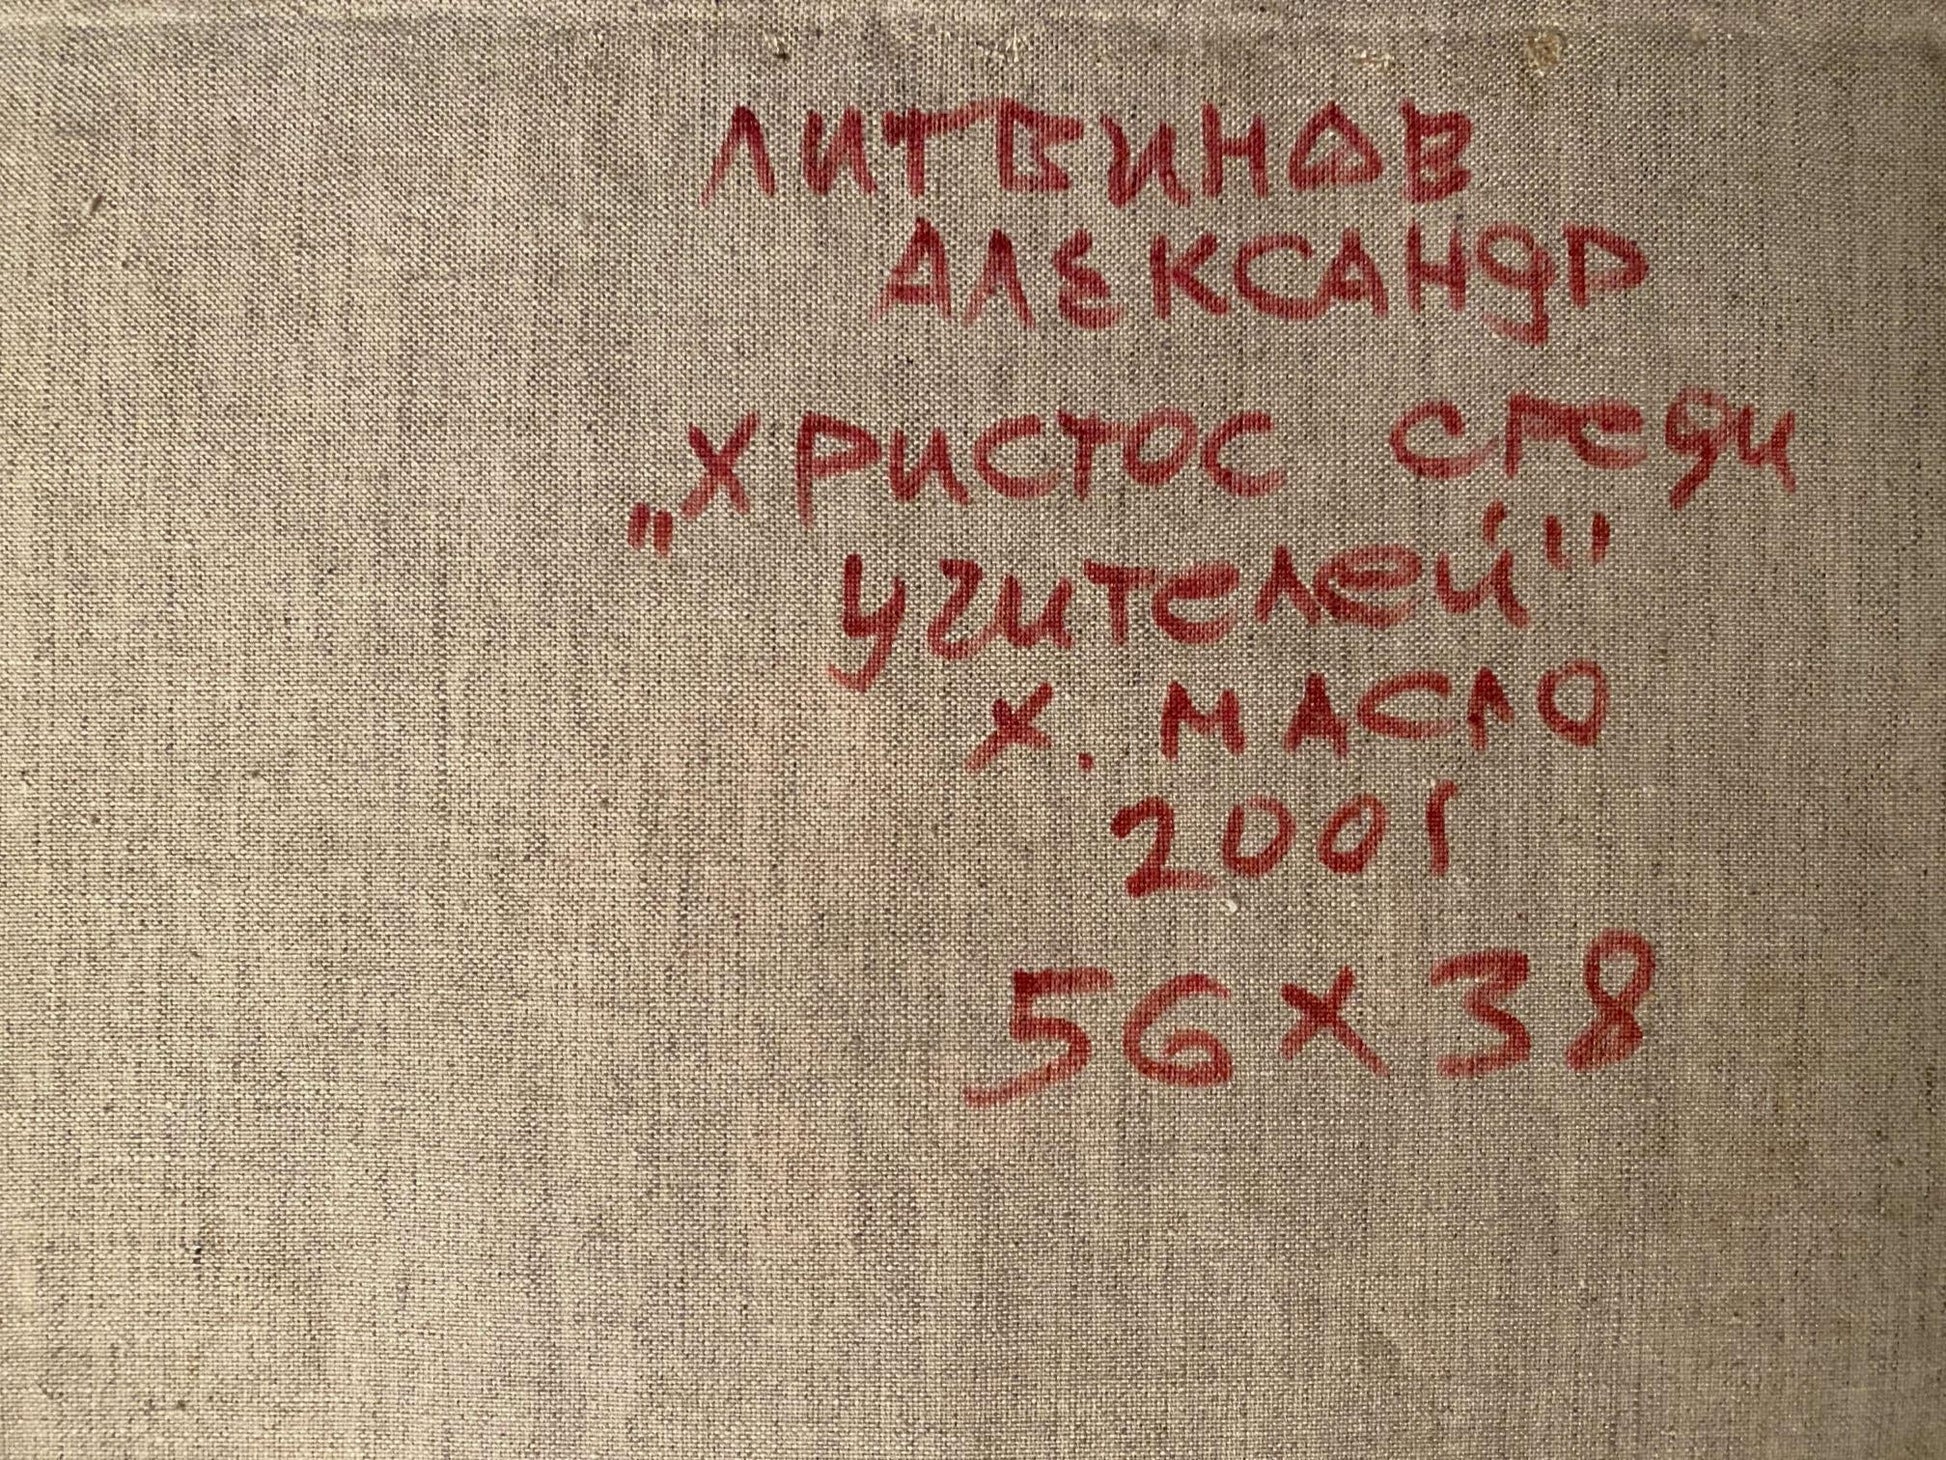 ЛИТВИНОВ
АЛЕКСАНДР
„ХРИСТОС СРЕДИ
УЧИТЕЛЕЙ"
Х. МАСЛО
2001
56 х 38